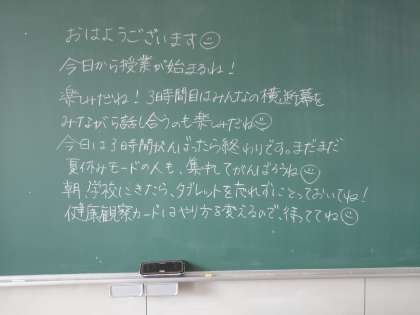 おはようございます☺
今日から授業が始まるね!
楽しみだね!3時間目はみんなの横断幕を
みながら話し合うのも楽しみだね☺
今日は3時間がんばったら終わりです。まだまだ
夏休みモードの人も、集中してがんばろうね☺
朝、学校にきたら、タブレットを忘れずにとっておいてね!
健康観察カードはやり方を変えるので、待っててね☺